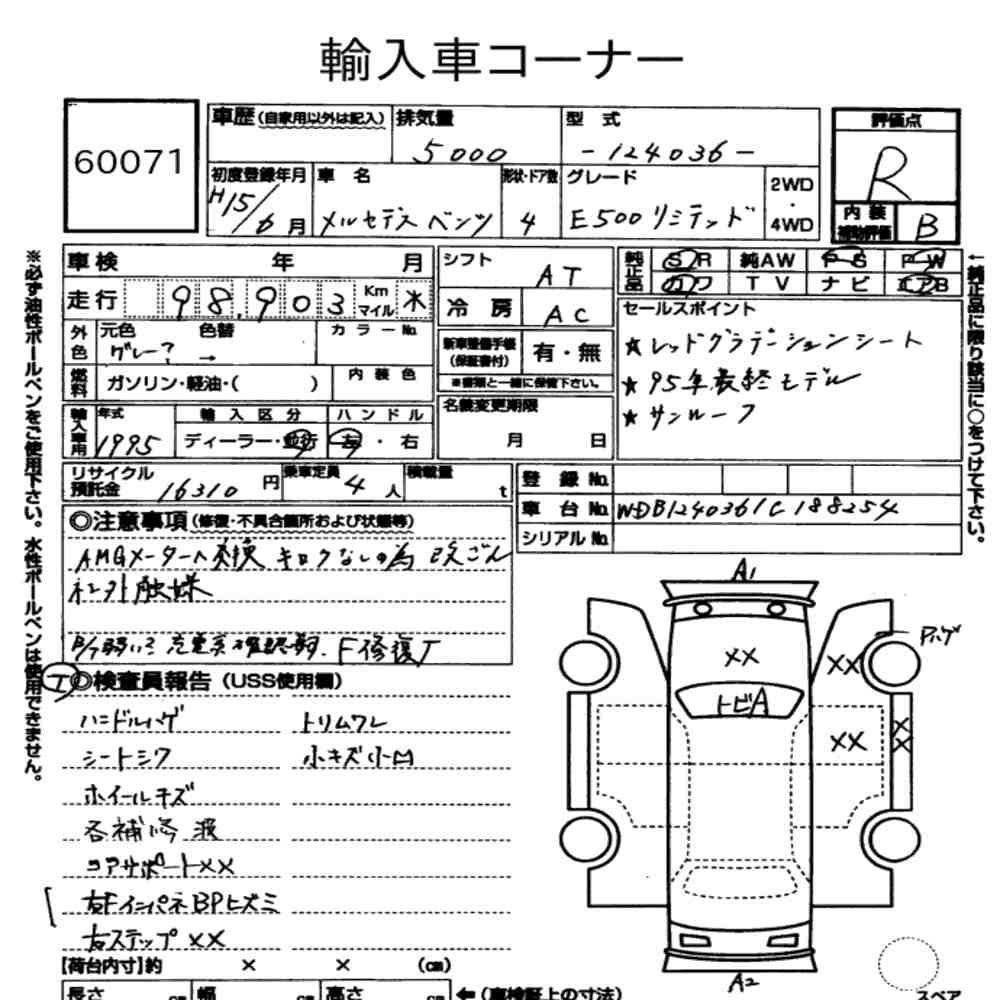 輸入車コーナー
60071
車歴 (自家用以外は記入)
排気量
5000
型式
-124036-
評価点
R
内装補助評価
B
初度登録年月
H15/6月
車名
メルセデスベンツ
形状・ドア数
4
グレード
E500リミテッド
2WD
・
4WD
車検 年 月
走行 98,903 Km マイル 米
シフト
AT
冷房
AC
純正品
SR 純AW PS PW
カワ TV ナビ エアB
外色
元色 色替
グレー? →
カラーNo.
燃料
ガソリン・軽油・( )
内装色
新車整備手帳
(保証書付)
有・無
※書類と一緒に保管下さい。
セールスポイント
★レッドグラデーションシート
★95年最終モデル
★サンルーフ
輸入車用
年式
1995
輸入区分
ディーラー・並行
ハンドル
左・右
名義変更期限
月 日
リサイクル預託金
16310円
乗車定員
4人
積載量
t
登録No.
車台No. WDB1240361C188254
シリアルNo.
◎注意事項 (修復・不具合箇所および状態等)
AMGメーター 交換 キロクなしの為 改ざん
社外触媒
B/T弱い 充電系 F修復
◎検査員報告 (USS使用欄)
ハンドルハゲ トリムワレ
シートシワ 小キズ小凹
ホイールキズ
各補修 波
コアサポートXX
右FインパネBPヒズミ
右ステップXX
【荷台内寸】約 × × (cm)
長さ cm 幅 cm 高さ cm
←(車検証上の寸法)
A1
Pハゲ
XX
XX
トビA
XX
XX
A2
スペア
※必ず油性ボールペンをご使用下さい。水性ボールペンは使用できません。
←純正品に限り該当に○をつけて下さい。